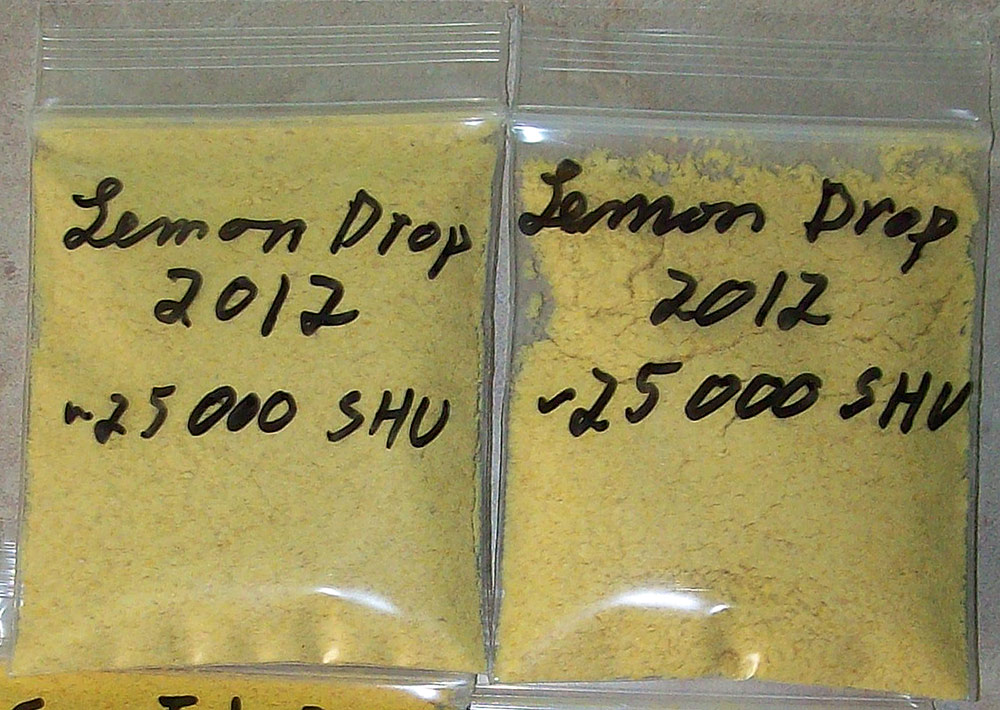 Lemon Drop
2012
~25000 SHU
Lemon Drop
2012
~25000 SHU